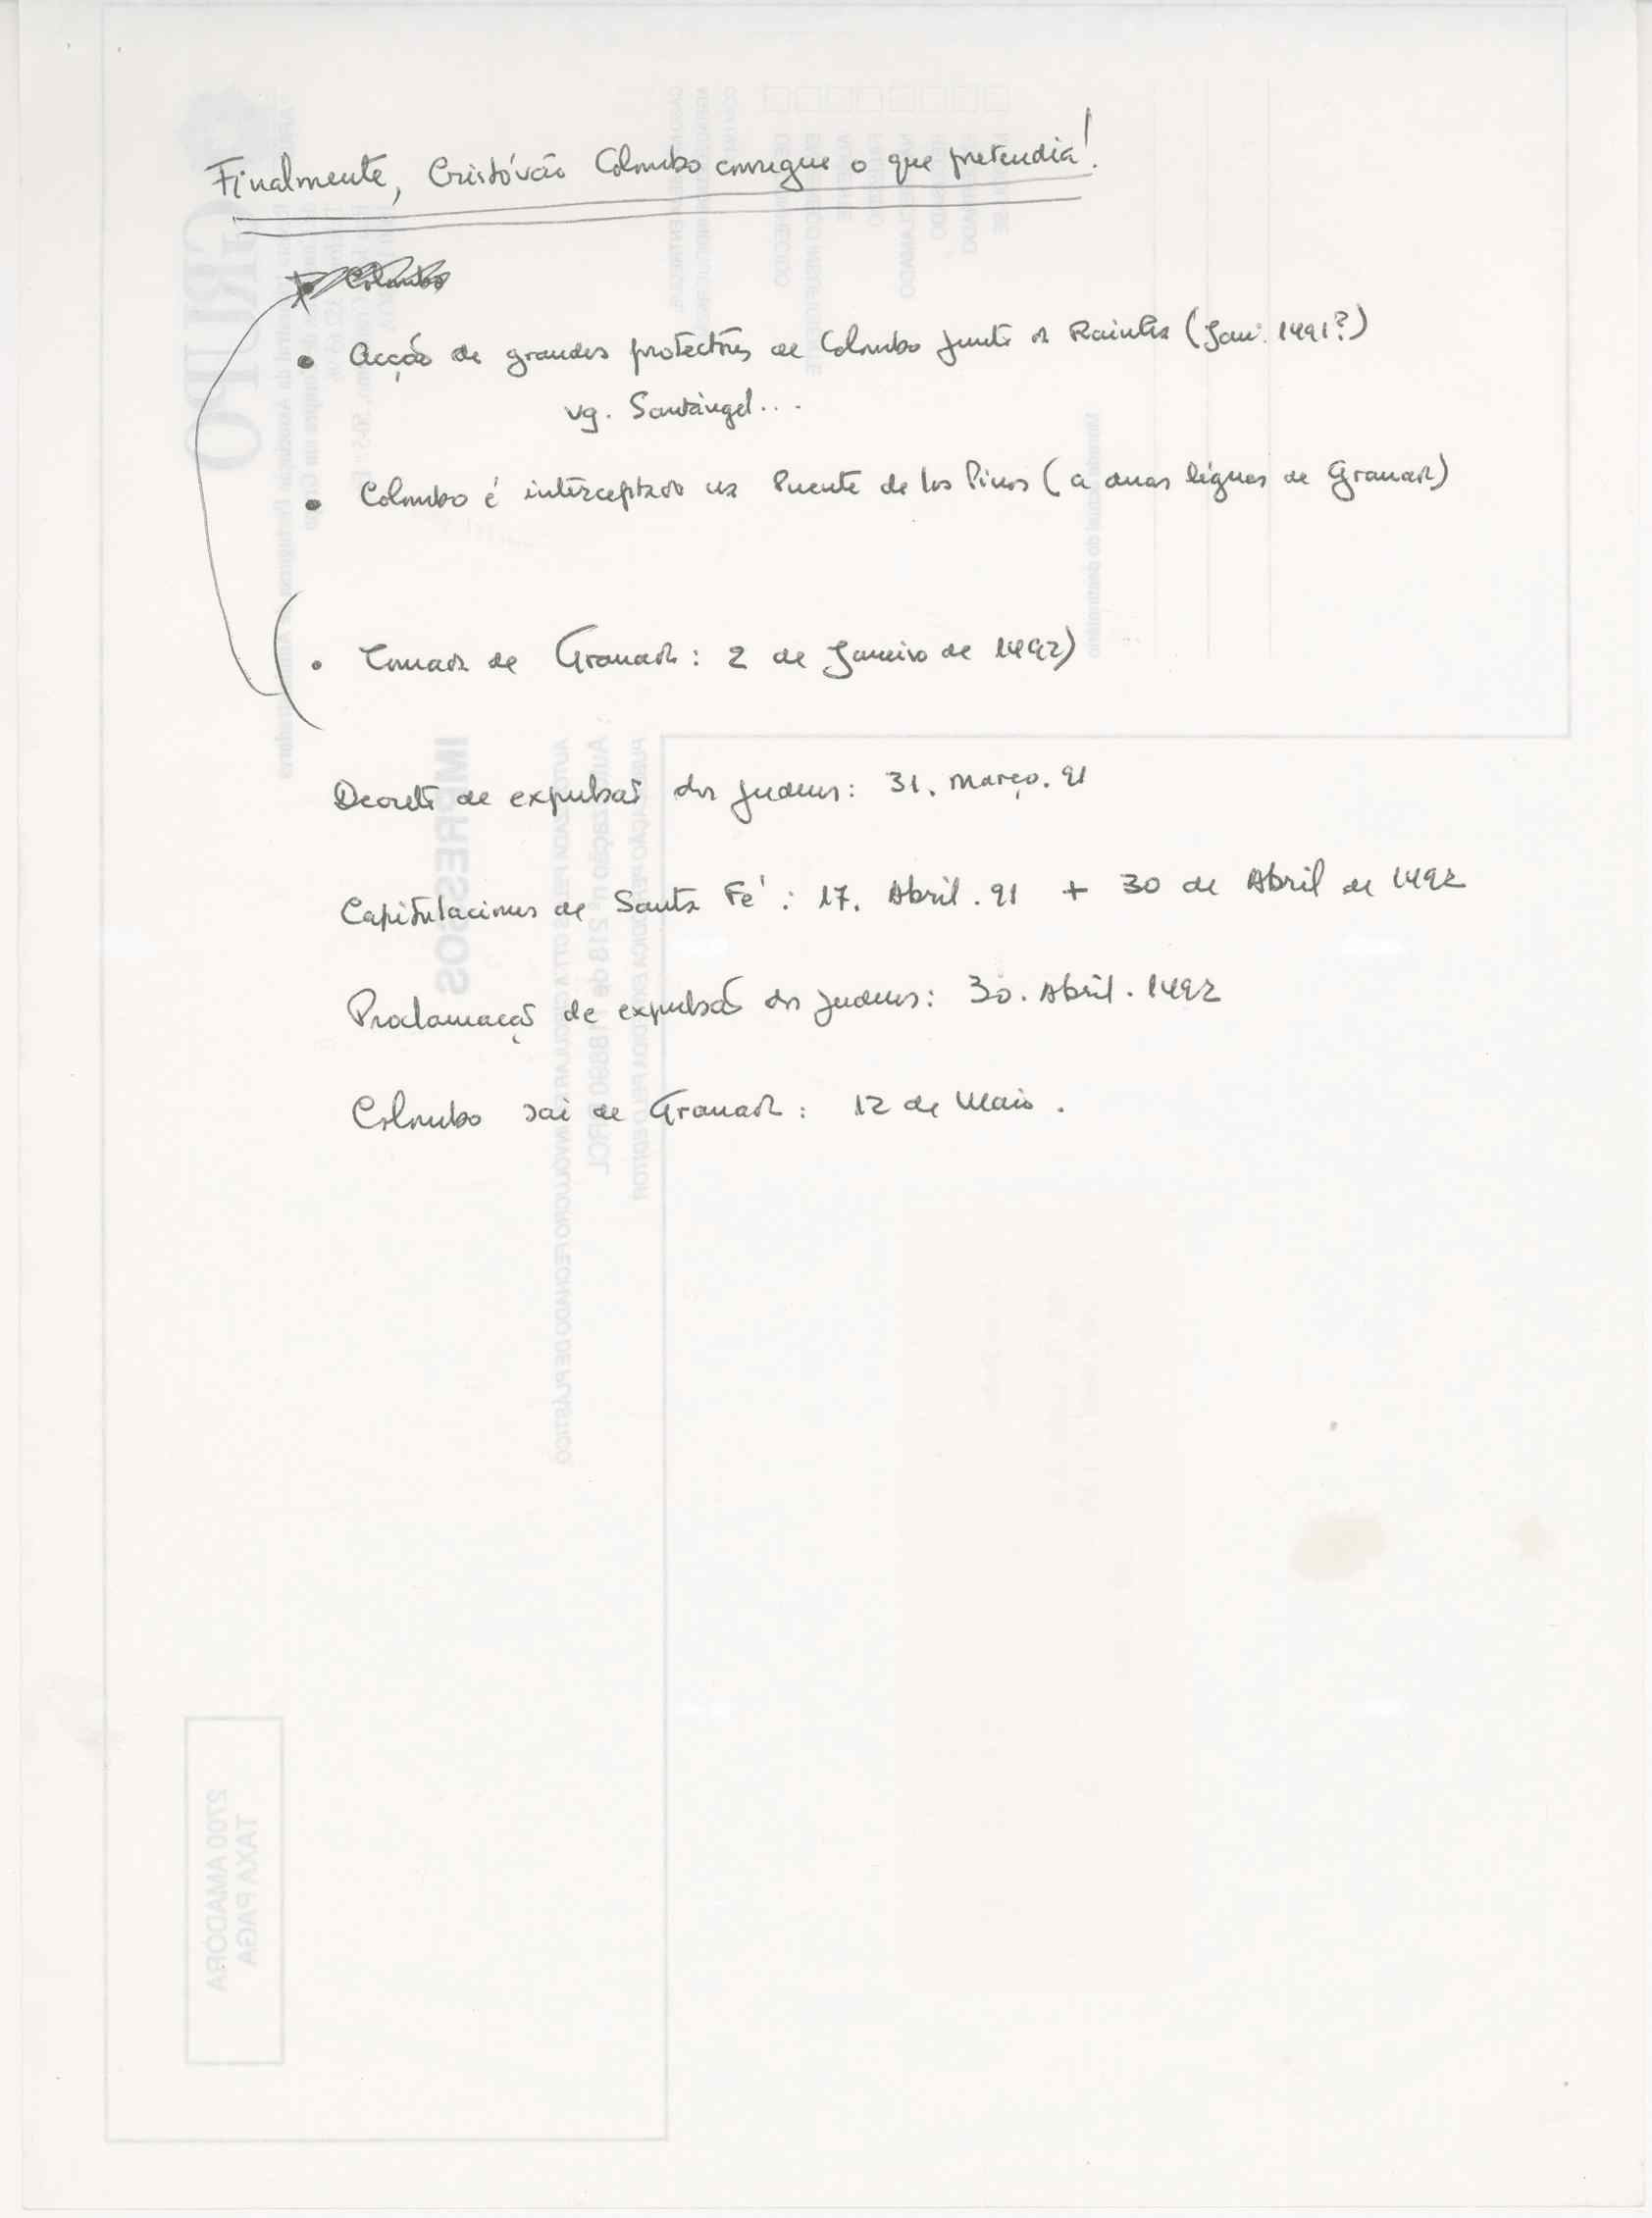 Finalmente, Cristóvão Colombo consegue o que pretendia!
Colombo
• Acção de grandes protectores de Colombo junto da Rainha (Jan. 1491?)
vg. Santángel...
• Colombo é interceptado na Puente de los Pinos (a duas léguas de Granada)
(• Tomada de Granada: 2 de Janeiro de 1492)
Decreto de expulsão dos judeus: 31. Março. 91
Capitulaciones de Santa Fé: 17. Abril. 91 + 30 de Abril de 1492
Proclamação de expulsão dos judeus: 30. Abril. 1492
Colombo sai de Granada: 12 de Maio.
GRIFO
IMPRESSOS
TAXA PAGA
2700 AMADORA